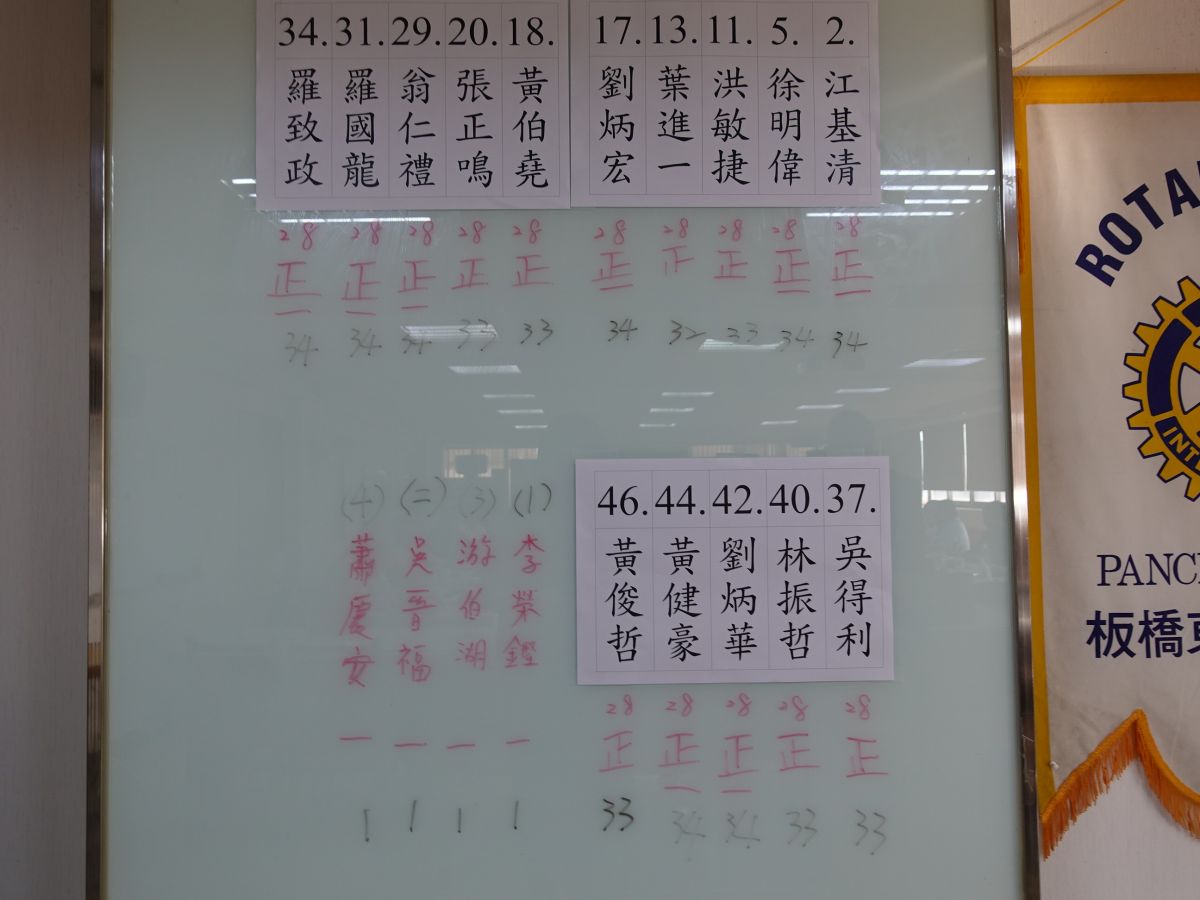 34. 31. 29. 20. 18.
羅致政 羅國龍 翁仁禮 張正鳴 黃伯堯
28 28 28 28 28
正一 正一 正一 正 正
34 34 34 33 33
17. 13. 11. 5. 2.
劉炳宏 葉進一 洪敏捷 徐明偉 江基清
28 28 28 28 28
正一 正 正 正一 正一
34 32 33 34 34
(4) (二) (3) (1)
蕭慶安 吳晉福 游伯湖 李榮鏗
一 一 一 一
1 1 1 1
46. 44. 42. 40. 37.
黃俊哲 黃健豪 劉炳華 林振哲 吳得利
28 28 28 28 28
正 正一 正一 正 正
33 34 34 33 33
ROTA
INT
PANC
板橋